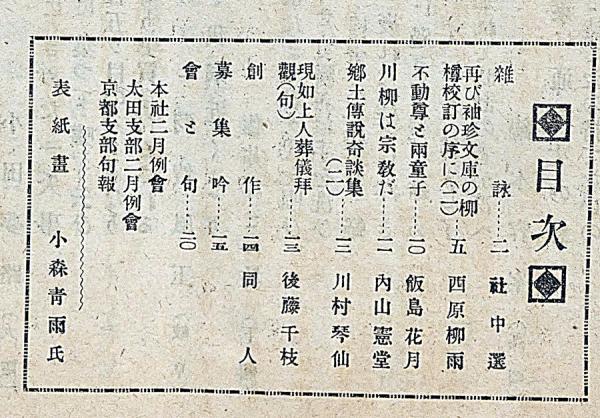 目次
雜詠……二 社中選
再び袖珍文庫の柳
樽校訂の序に(二)……五 西原柳雨
不動尊と兩童子……一〇 飯島花月
川柳は宗教だ……一一 內山憲堂
鄉土傳說奇談集(二)……一三 川村琴仙
現如上人葬儀拜
觀(句)……一三 後藤千枝
創作……一四 同人
募集吟……一五
會と句……二〇
本社二月例會
太田支部二月例會
京都支部句報
表紙畫 小森靑雨氏